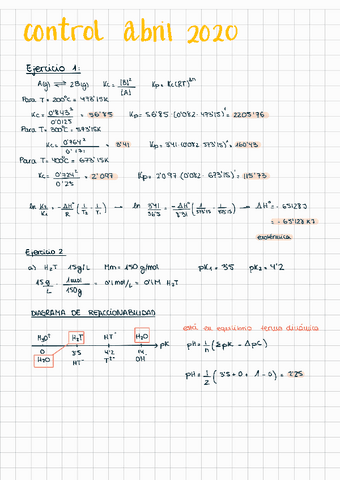 control abril 2020
Ejercicio 1:
A(g) ⇌ 2B(g) Kc = [B]²/[A] Kp = Kc(RT)^Δn
Para T = 200ºC = 473'15K
Kc = 0'843²/0'0125 = 56'85 Kp = 56'85 · (0'082 · 473'15)¹ = 2205'76
Para T = 300ºC = 573'15K
Kc = 0'764²/0'171 = 3'41 Kp = 3'41 · (0'082 · 573'15)¹ = 160'43
Para T = 400ºC = 673'15K
Kc = 0'724²/0'25 = 2'097 Kp = 2'097 (0'082 · 673'15)¹ = 115'73
ln K₂/K₁ = -ΔHº/R (1/T₂ - 1/T₁) → ln 3'41/56'85 = -ΔHº/8'31 (1/573'15 - 1/473'15) → ΔHº = -65128 J
= -65'128 KJ
exotérmica
Ejercicio 2
a) H₂T 15g/L Mm = 150 g/mol pK₁ = 3'5 pK₂ = 4'2
15 g/L · 1mol/150g = 0'1 mol/L = 0'1M H₂T
DIAGRAMA DE REACCIONABILIDAD
está en equilibrio termodinámico
H₃O⁺ H₂T HT⁻ H₂O
pK
0 3'5 4'2 14
H₂O HT⁻ T²⁻ OH
pH = 1/n (ΣpK - ΔpC)
pH = 1/2 (3'5 + 0 + 1 - 0) = 2'25